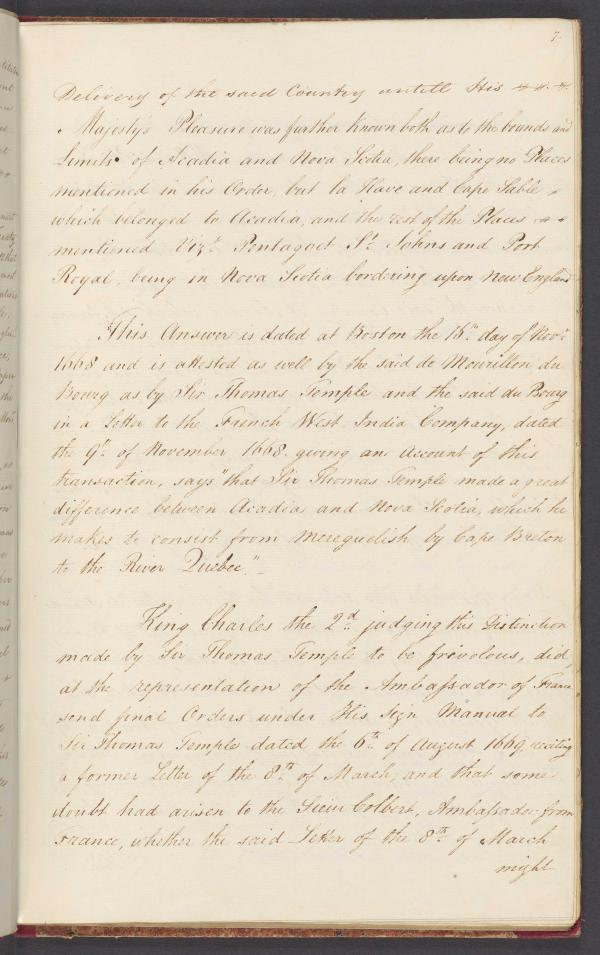 7.
Delivery of the said Country untill His
Majesty's Pleasure was further known both as to the bounds and
Limits of Acadia and Nova Scotia, there being no Places
mentioned in his Order, but la Have and Cape Sable
which belonged to Acadia, and the rest of the Places
mentioned Vizt. Pentagoet St. Johns and Port
Royal, being in Nova Scotia bordering upon New England
This Answer is dated at Boston the 16th. day of Novr.
1668 and is attested as well by the said de Mourillon du
Bourg as by Sir Thomas Temple and the said du Bourg
in a Letter to the French West India Company, dated
the 9th. of November 1668. giving an Account of this
transaction, says "that Sir Thomas Temple made a great
difference between Acadia and Nova Scotia, which he
makes to consist from Mereguelish by Cape Breton
to the River Quebec."
King Charles the 2d. judging this Distinction
made by Sir Thomas Temple to be frivolous, did,
at the representation of the Ambassador of France
send final Orders under His Sign Manual to
Sir Thomas Temple dated the 6th. of August 1669, reciting
a former Letter of the 8th. of March, and that some
doubt had arisen to the Sieur Colbert, Ambassador from
France, whether the said Letter of the 8th. of March
might